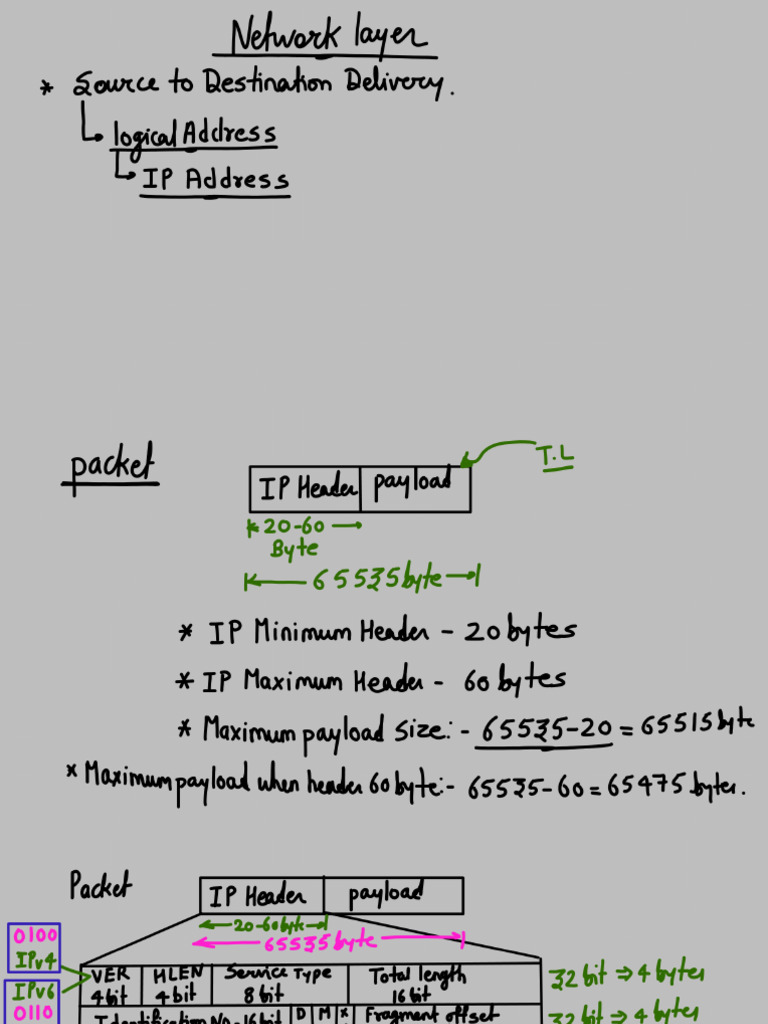 Network layer
* Source to Destination Delivery.
logical Address
IP Address
packet
T.L
IP Header payload
20-60
Byte
65535 byte
* IP Minimum Header - 20 bytes
* IP Maximum Header - 60 bytes
* Maximum payload size:- 65535-20 = 65515 byte
* Maximum payload when header 60 byte:- 65535-60 = 65475 bytes.
Packet
IP Header payload
20-60 byte
65535 byte
0100
IPv4
IPv6
0110
VER HLEN Service Type Total length
4 bit 4 bit 8 bit 16 bit
32 bit ⇒ 4 bytes
Identification No - 16 bit D M x Fragment offset
32 bit ⇒ 4 bytes